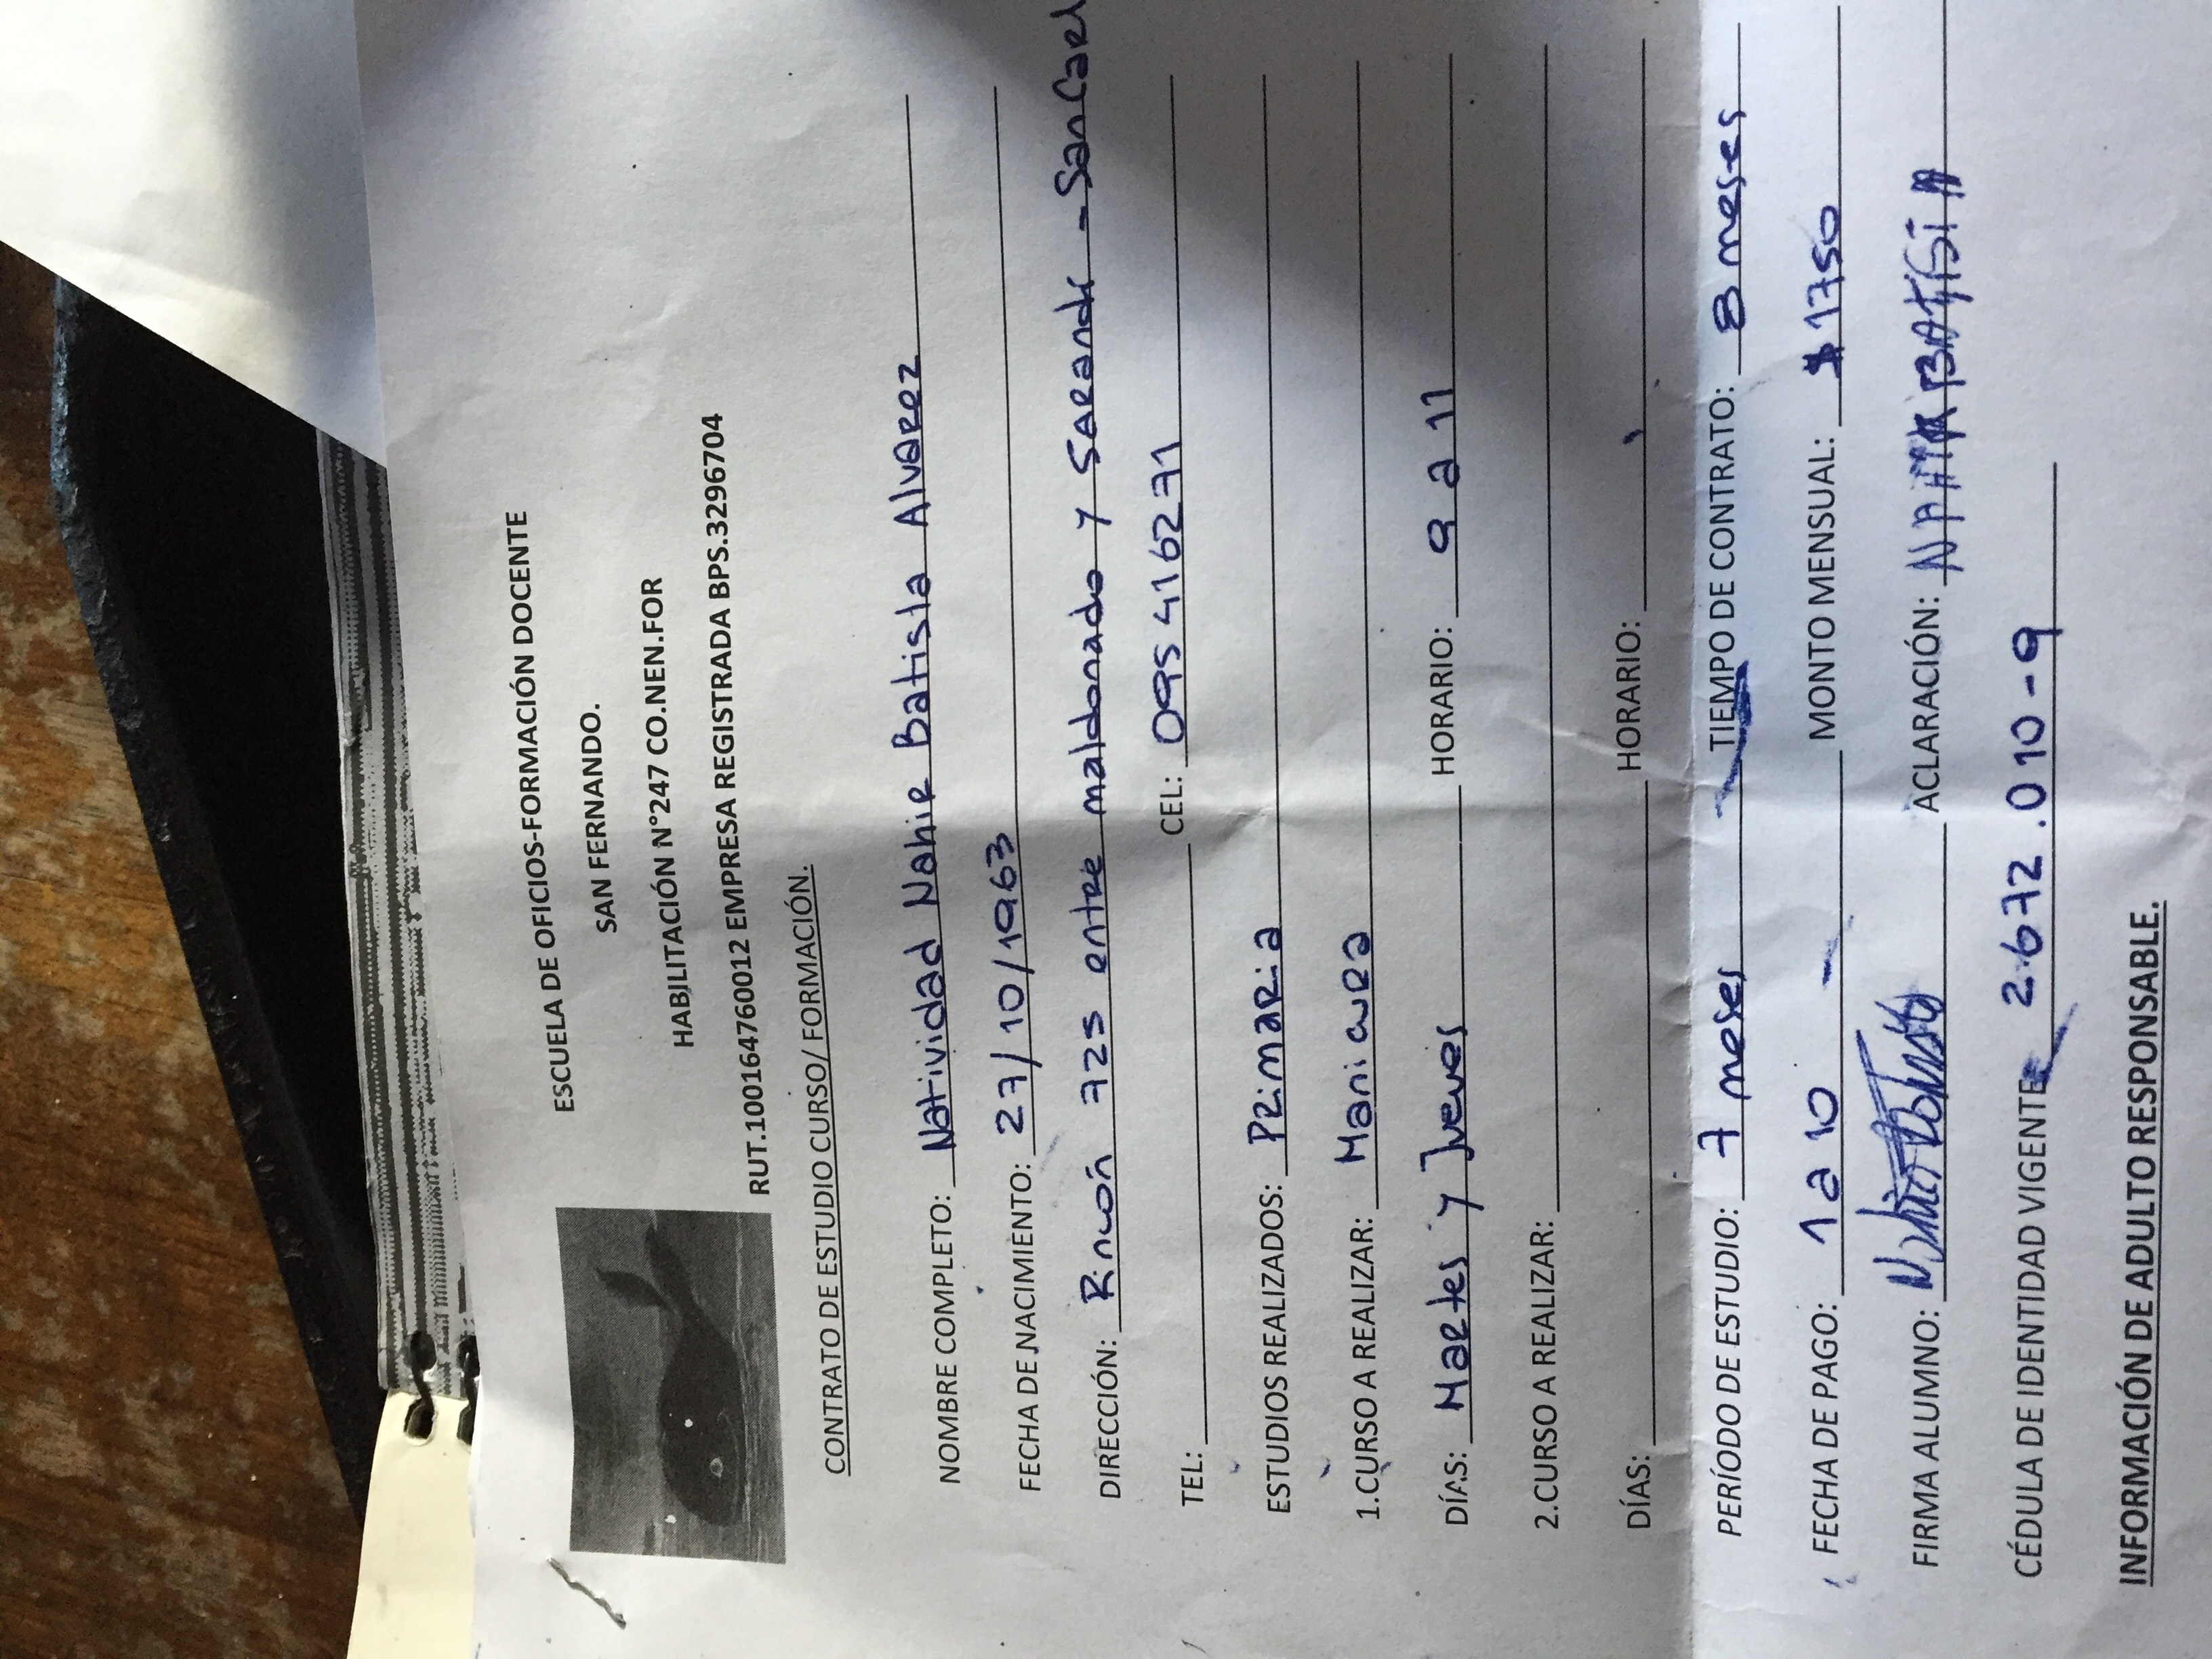 ESCUELA DE OFICIOS-FORMACIÓN DOCENTE
SAN FERNANDO.
HABILITACIÓN N°247 CO.NEN.FOR
RUT.100164760012 EMPRESA REGISTRADA BPS.3296704
CONTRATO DE ESTUDIO CURSO/ FORMACIÓN.
NOMBRE COMPLETO: Natividad Nahir Batista Alvarez
FECHA DE NACIMIENTO: 27/10/1963
DIRECCIÓN: Rincón 725 entre maldonado y Sarandí - San Carl
TEL: CEL: 095 416271
ESTUDIOS REALIZADOS: Primaria
1.CURSO A REALIZAR: Manicura
DÍAS: Martes y Jueves HORARIO: 9 a 11
2.CURSO A REALIZAR:
DÍAS: HORARIO:
PERÍODO DE ESTUDIO: 7 meses TIEMPO DE CONTRATO: 8 meses
FECHA DE PAGO: 1 a 10 MONTO MENSUAL: $ 1750
FIRMA ALUMNO: ACLARACIÓN: NAHIR BATISTA
CÉDULA DE IDENTIDAD VIGENTE: 2.672.010-9
INFORMACIÓN DE ADULTO RESPONSABLE.